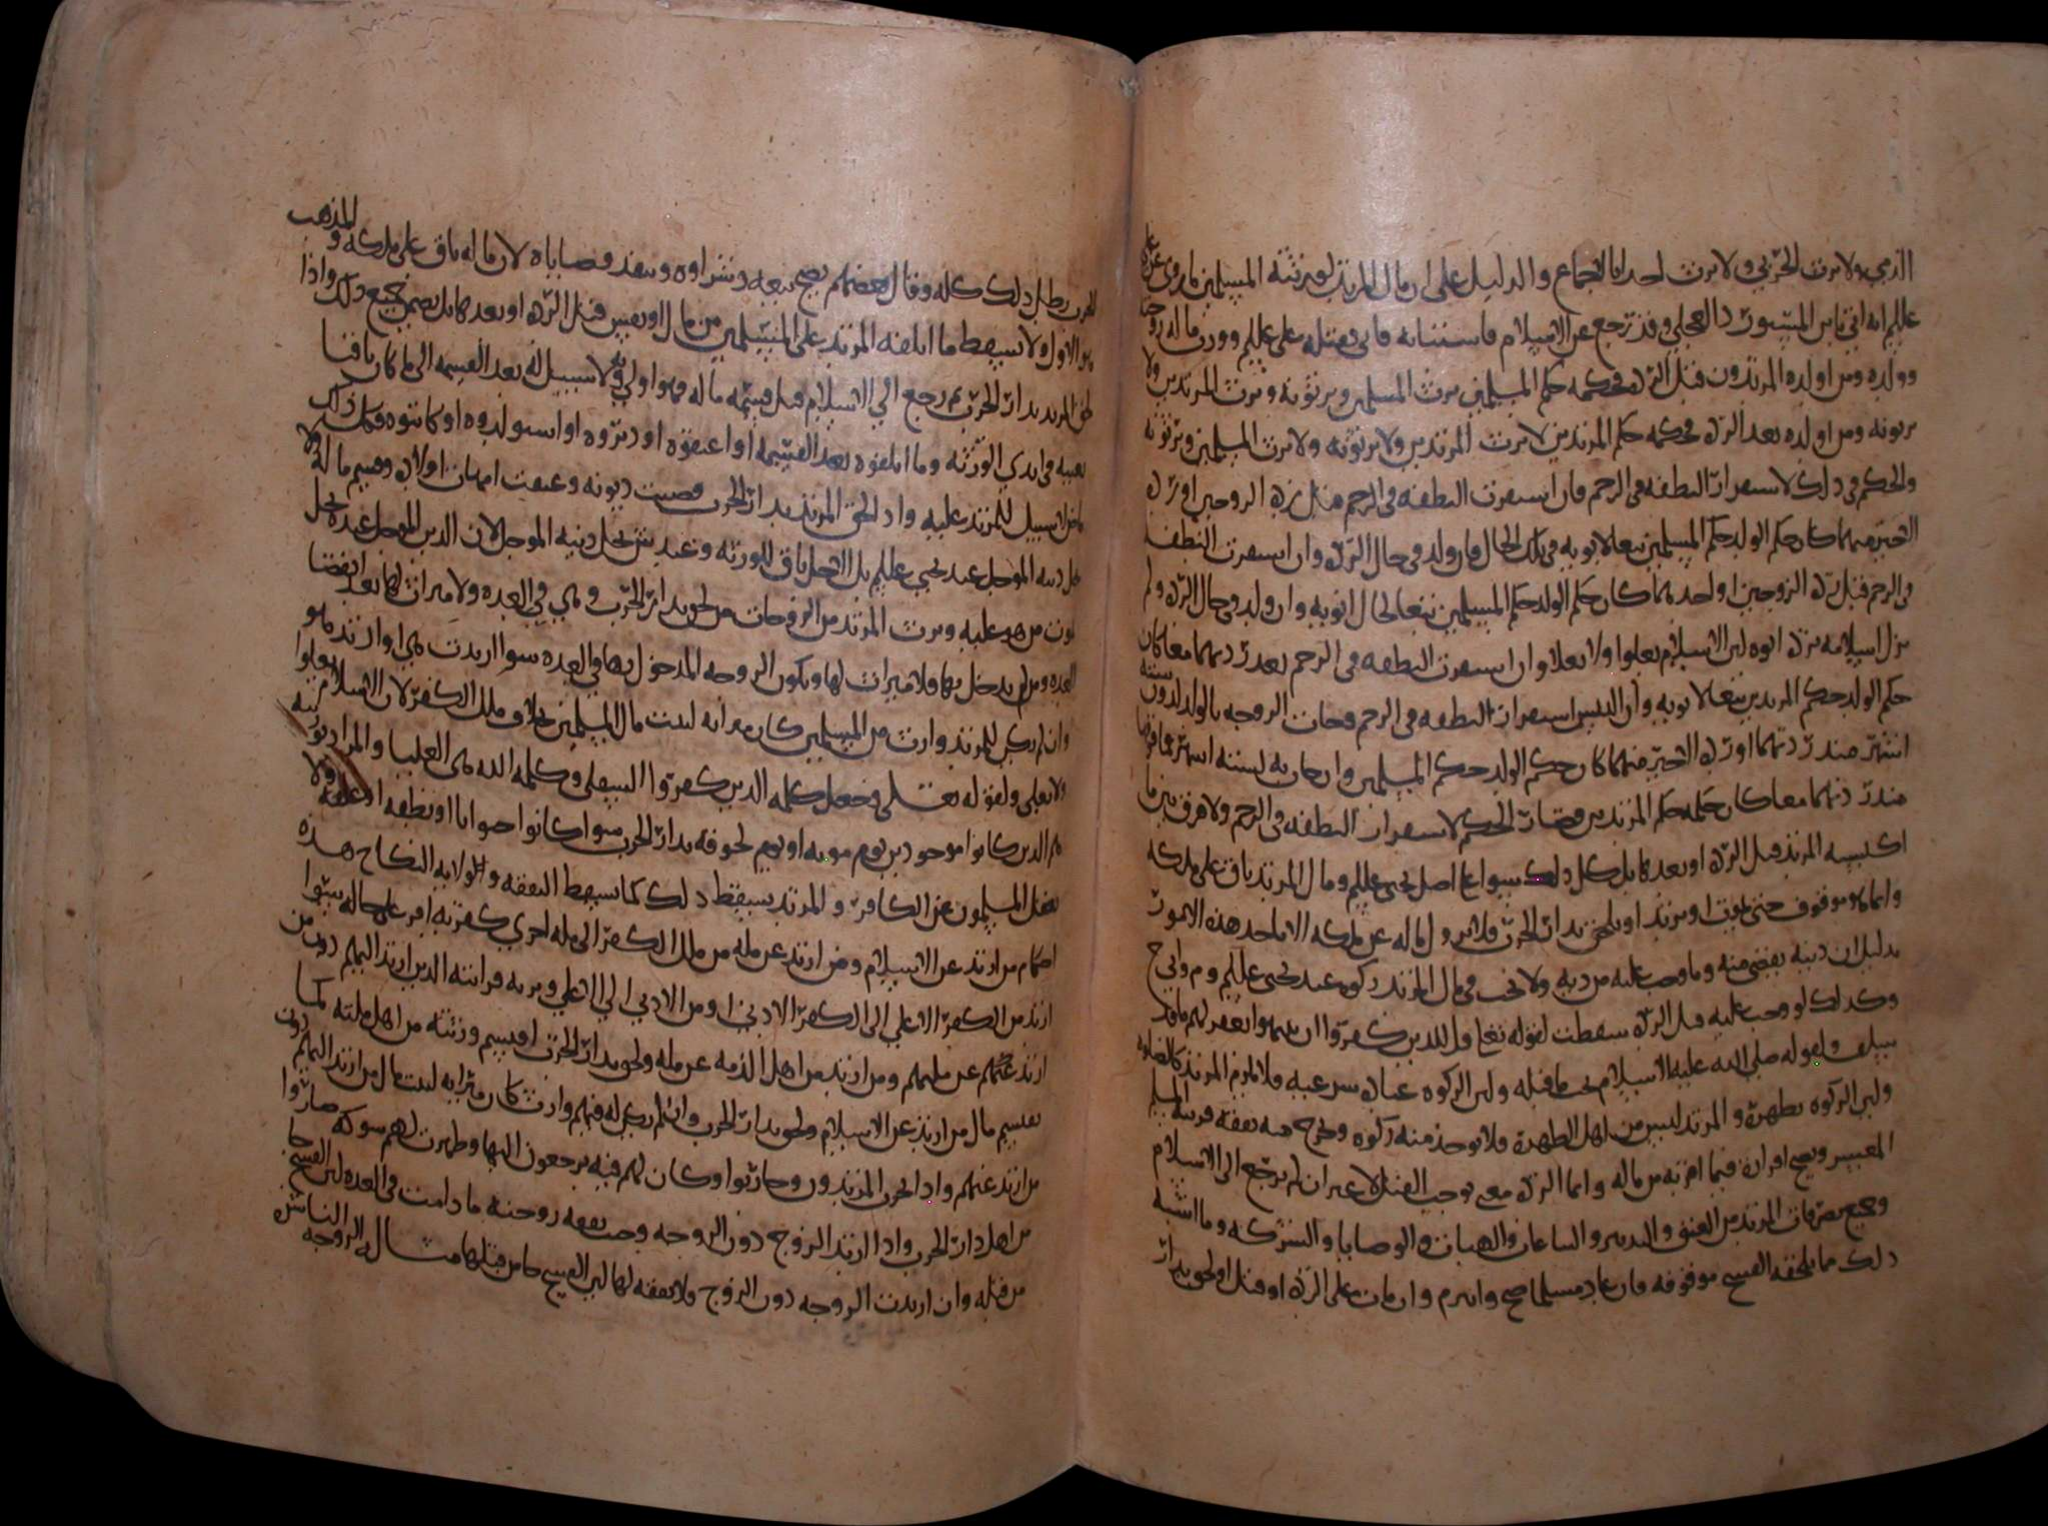 الذمي ولا يرث الحربي ولا يرث احد اما لاجماع والدليل على ان مال المرتد لورثته المسلمين ما روي عن علي
عليلم انه اتي بابن المستورد العجلي وقد رجع عن الاسلام فاستتابه فابى فقتله علي عليلم وورث ماله زوجته
وولده ومن اولده المرتدون قبل الردة فحكمه حكم المسلمين يرث المسلمين ويرثونه ويرث المرتدين ولا
يرثونه ومن اولده بعد الردة فحكمه حكم المرتدين لا يرث المرتدين ولا يرثونه ولا يرث المسلمين ويرثونه
والحكم في ذلك لاستقرار النطفة في الرحم فان استقرت النطفة في الرحم قبل ردة الزوجين او ردة
الاخير منهما كان حكم الولد حكم المسلمين تبعا لابويه في تلك الحال فان ولد في حال الردة وان استقرت النطفة
في الرحم قبل ردة الزوجين او احدهما كان حكم الولد حكم المسلمين تبعا لحال ابويه وان ولد في حال الردة ولم
يزل اسلامه بردة ابويه لان الاسلام يعلوا ولا يعلا وان استقرت النطفة في الرحم بعد ردتهما معا كان
حكم الولد حكم المرتدين تبعا لابويه وان التبس استقرار النطفة في الرحم فجات الزوجه بالولد لدون ستة
اشهر منذ ردتهما او ردة الاخير منهما كان حكم الولد حكم المسلمين وان جات به لستة اشهر فما فوقها
منذ ردتهما معا كان حكمه حكم المرتدين فصار الحكم لاستقرار النطفة في الرحم ولا فرق بين ما
اكتسبه المرتد قبل الردة او بعدها بل كل ذلك سوا على اصل يحيى عليلم ومال المرتد باق على ملكه
وانما هو موقوف حتى يموت او يرتد او يلحق بدار الحرب فلا يزول ماله عن ملكه الا باحد هذه الامور
بدليل ان دينه يقضى منه وما وجب عليه من دية ولا تجب في مال المرتد زكوة عند يحيى عليلم وم وابي ح
وكذلك لو وجب عليه قبل الردة سقطت لقوله تعا قل للذين كفروا ان ينتهوا يغفر لهم ما قد
سلف ولقوله صلى الله عليه الاسلام يجب ما قبله ولان الزكوة عبادة شرعية فلا تلزم المرتد كالصلوة
ولان الزكوة تطهرة والمرتد ليس من اهل الطهرة فلا يوخذ منه زكوة وتخرج منه نفقة قريبه المسلم
المعسر ويصح اقراره فيما اقر به من ماله وانما الردة معنى يوجب القتل لا غير ان لم يرجع الى الاسلام
وجميع تصرفات المرتد من العتق والتدبير والبياعات والهبات والوصايا والشركه وما اشبه
ذلك مما يلحقه الفسخ موقوفه فان عاد مسلما صح وانبرم وان مات على الردة او قتل او لحق بدار
الحرب بطل ذلك كله وقال بعضهم يصح بيعه وشراوه وتنفذ وصاياه لان ماله باق على ملكه والمذهب
هو الاول ولا يسقط ما اتلفه المرتد على المسلمين من مال او نفس قبل الردة او بعدها بل يضمن جميع ذلك واذا
لحق المرتد بدار الحرب ثم رجع الى الاسلام قبل قسمة ماله فهو اولى به ولا سبيل له بعد القسمه الى ما كان باقيا
بعينه في ايدي الورثه وما اتلفوه بعد القسمه او اعتقوه او دبروه او استولدوه او كاتبوه قبل ذلك
فلا سبيل للمرتد عليه واذا لحق المرتد بدار الحرب قضيت ديونه وعتقت امهات اولاده وقسم ماله ولا
يحل دينه الموجل عند يحيى عليلم بل الاجل باق للورثه وعند ش يحل دينه الموجل لان الدين الموجل عنده يحل
بموت من هو عليه ويرث المرتد من الزوجات من لحق بدار الحرب وهي في العدة ولا ميراث لها بعد انقضا
العده ومن لم يدخل بها فلا ميراث لها وتكون الزوجه المدخول بها في العده سوا ارتدت هي او ارتد هو
وان لم يكن للمرتد وارث من المسلمين كان ميراثه لبيت مال المسلمين بخلاف ملل الكفر لان الاسلام يعلوا
ولا يعلى ولقوله تعالى وجعل كلمة الذين كفروا السفلى وكلمة الله هي العليا والمراد بورثته
هم الذين كانوا موجودين يوم موته او يوم لحوقه بدار الحرب سوا كانوا حيوانا او نطفة او علقة ولا
يعقل المسلمون عن الكافر والمرتد يسقط ذلك كما يسقط النفقة والولاية النكاح هذه
احكام من ارتد عن الاسلام ومن ارتد عن ملة من ملل الكفر الى ملة اخرى كفرية اقر على حاله سوا
ارتد من الكفر الاعلى الى الكفر الادنى او من الادنى الى الاعلى ويرثه قرابته الذين ارتد اليهم دون من
ارتد عنهم عن ملتهم ومن ارتد من اهل الذمة عن ملة ولحق بدار الحرب اقتسم ورثته من اهل ملته كما
يقتسم مال من ارتد عن الاسلام ولحق بدار الحرب وان لم يكن له فيهم وارث كان ميراثه لبيت مال من ارتد اليهم دون
من ارتد عنهم واذا لحق المرتدون وحاربوا وكان لهم فية يرجعون اليها وظهرت لهم شوكة صاروا
من اهل دار الحرب واذا ارتد الزوج دون الزوجه وجب نفقة زوجته ما دامت في العده لان الفسخ جا
من قبله وان ارتدت الزوجه دون الزوج فلا نفقة لها لان الفسخ جا من قبلها مثاله الزوجه الناشز